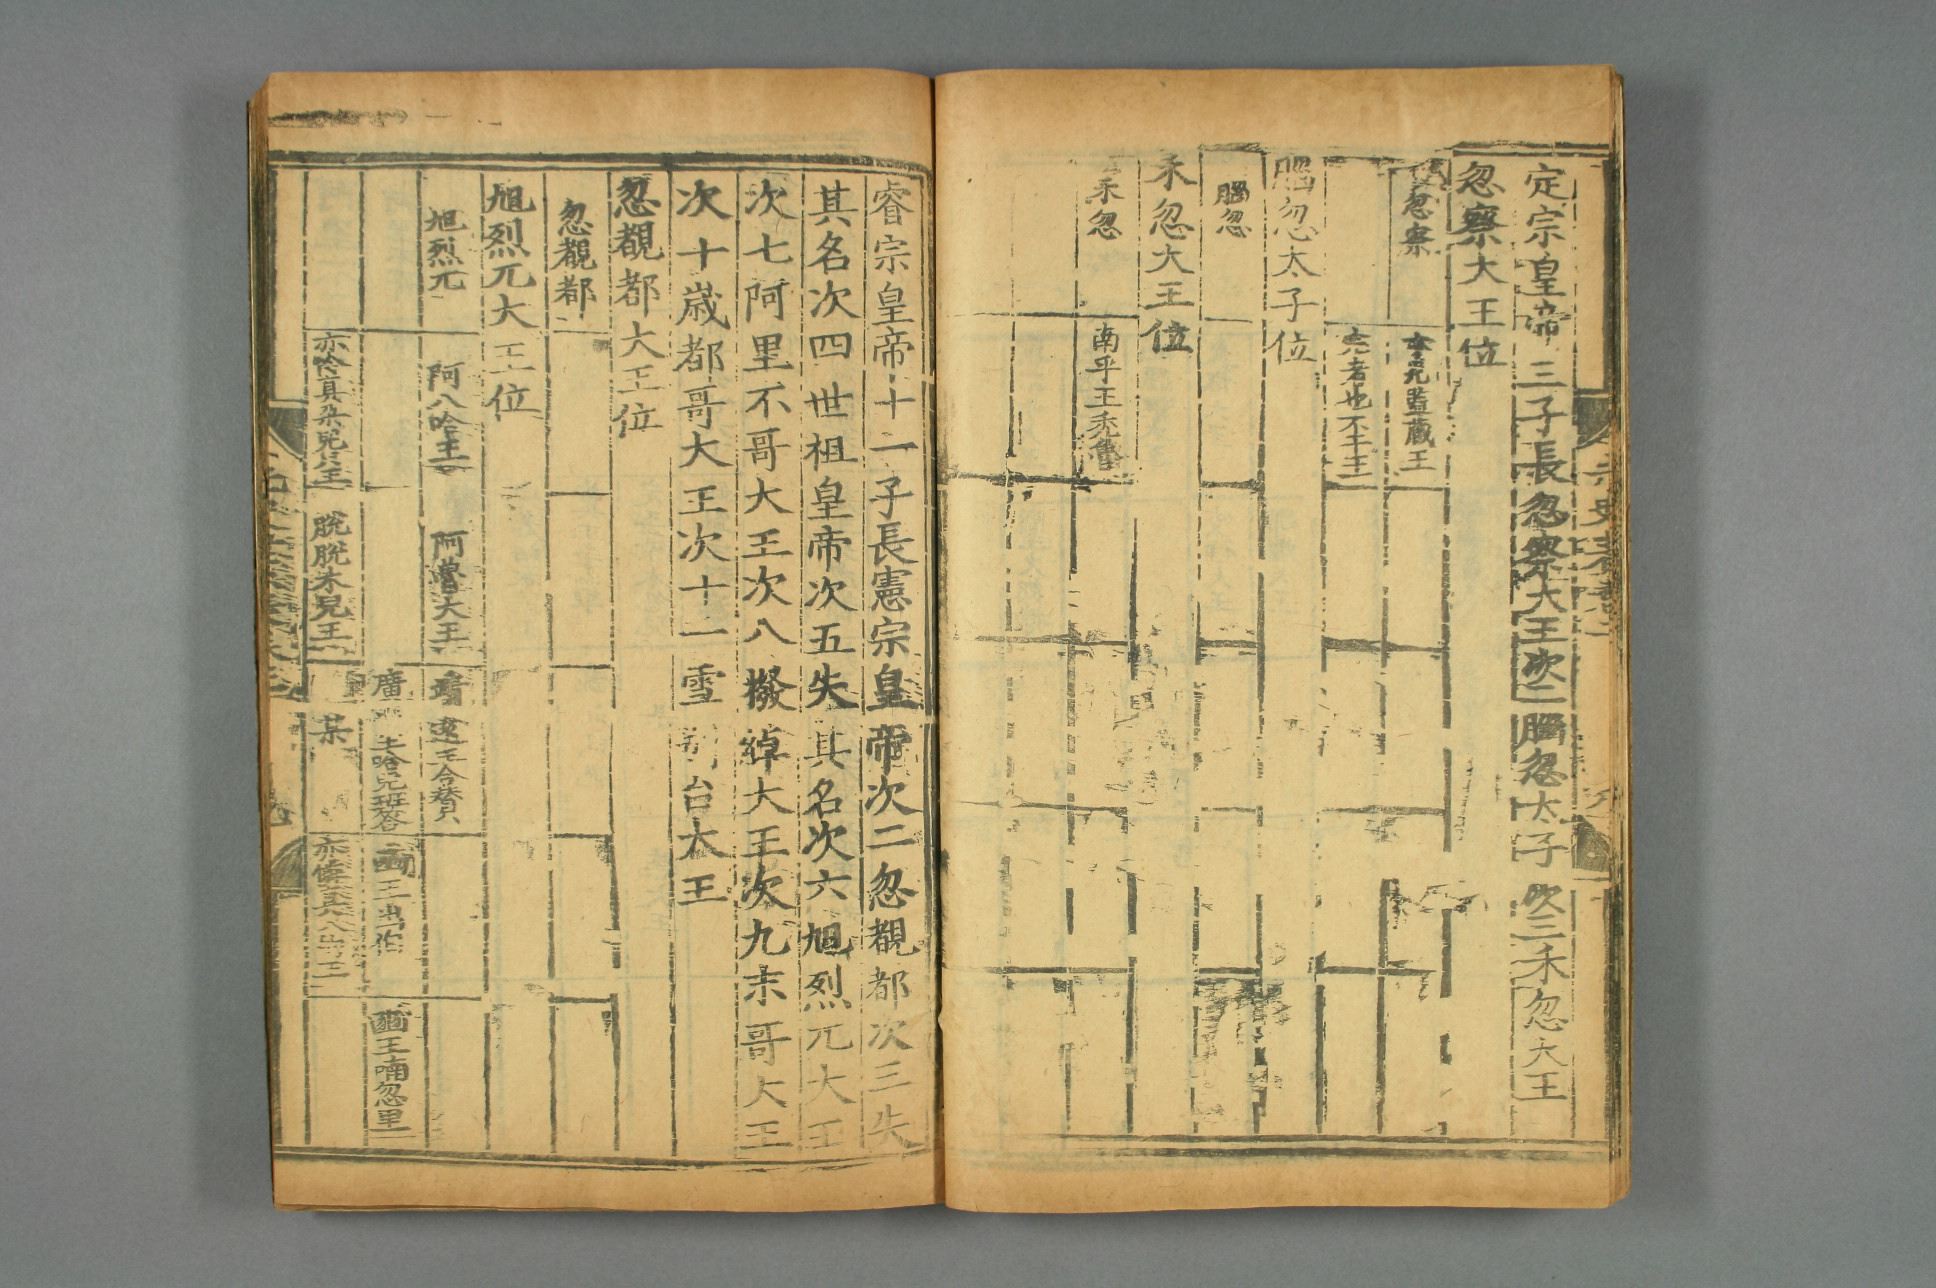 定宗皇帝三子長忽察大王次二腦忽太子次三禾忽大王
忽察大王位
忽察
完者也不干王
腦忽太子位
腦忽
禾忽大王位
禾忽
南平王禿魯
睿宗皇帝十一子長憲宗皇帝次二忽覩都次三失
其名次四世祖皇帝次五失其名次六旭烈兀大王
次七阿里不哥大王次八撥綽大王次九末哥大王
次十歲都哥大王次十一雪別台大王
忽覩都大王位
忽覩都
旭烈兀大王位
旭烈兀
阿八哈王
阿魯大王
靖遠王合贊
廣
王出伯
豳王喃忽里
亦怜真朵兒只王
脫脫木兒王
某